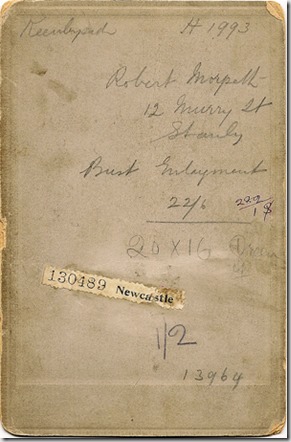 H 1993
Robert Morpeth
12 Murry St
Stanly
Bust Enlargment
22/6
20 X 16
130489 Newcastle
1/2
13964